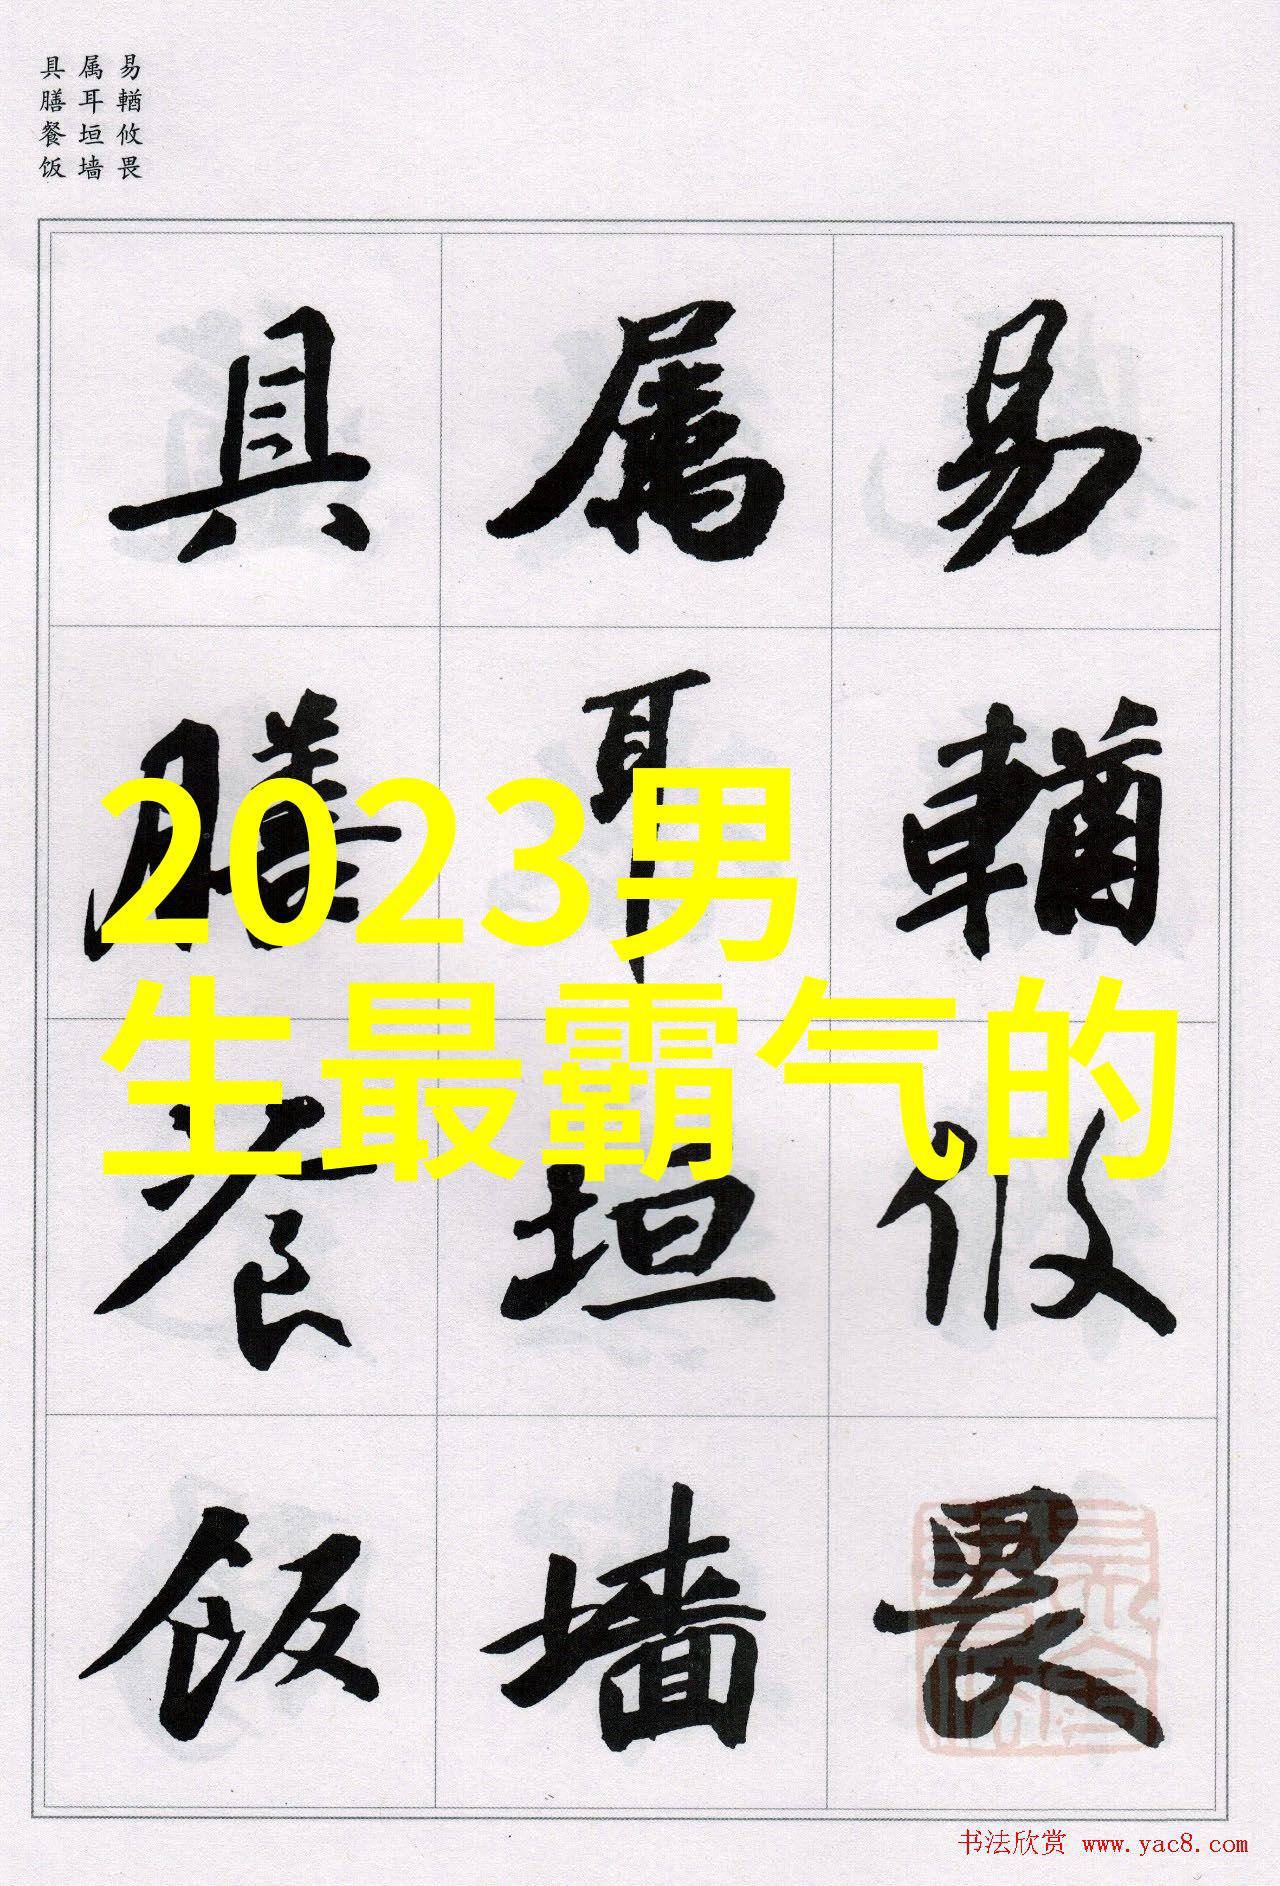 易輶攸畏
属耳垣墙
具膳餐饭
易輶攸畏
属耳垣墙
具膳餐饭
2023男
生最霸气的
书法欣赏 www.yac8.com